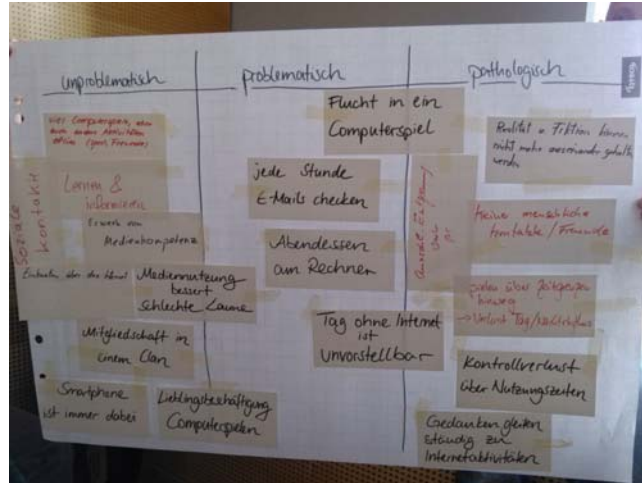 unproblematisch
viel Computerspiele, aber
auch andere Aktivitäten
Freunde)
Lernen &
informieren
Erwerb von
Medienkompetenz
Soziale
Kontakte
Mediennutzung
bessert
schlechte Laune
Mitgliedschaft in
einem Clan
Smartphone
ist immer dabei
Lieblingsbeschäftigung
Computerspielen
problematisch
Flucht in ein
Computerspiel
jede Stunde
E-Mails checken
Abendessen
am Rechner
Tag ohne Internet
ist
unvorstellbar
pathologisch
Realität & Fiktion können
nicht mehr auseinander gehalten
werden
Keine menschliche
Kontakte / Freunde
spielen über Zeitgrenzen
hinweg
→ Verlust Tag/Nachtrhythmus
Kontrollverlust
über Nutzungszeiten
Gedanken gleiten
ständig zu
Internetaktivitäten